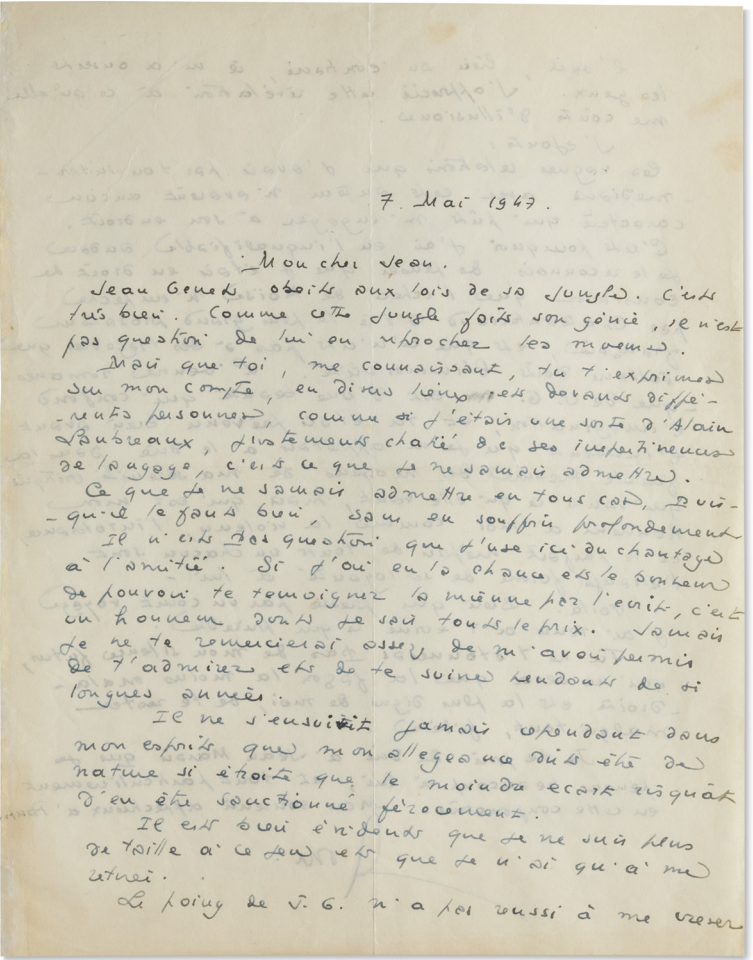 7. Mai 1947.
Mon cher Jean.
Jean Genet obeit aux lois de sa jungle. C'est
très bien. Comme cette jungle fait son génie, il n'est
pas question de lui en reprocher les moeurs.
Mais que toi, me connaissant, tu t'exprimes
sur mon compte, en divers lieux et devant diffé-
-rentes personnes, comme si j'étais une sorte d'Alain
Laubreaux, justement chatié de ses impertinences
de langage, c'est ce que je ne saurais admettre.
Ce que je ne saurais admettre en tous cas, puis-
-qu'il le faut bien, sans en souffrir profondément
Il n'est pas question que j'use ici du chantage
à l'amitié. Si j'ai eu la chance et le bonheur
de pouvoir te temoigner la mienne par l'ecrit, c'est
un honneur dont je sais tout le prix. Jamais
je ne te remercierai assez de m'avoir permis
de t'admirer et de te suivre pendant de si
longues années.
Il ne s'ensuivit jamais cependant dans
mon esprit que mon allegeance dut être de
nature si étroite que le moindre ecart risquât
d'en être sanctionné férocement.
Il est bien évident que je ne suis plus
de taille à ce jeu et que je n'ai qu'à me
retirer.
Le poing de J. G. n'a pas reussi à me crever